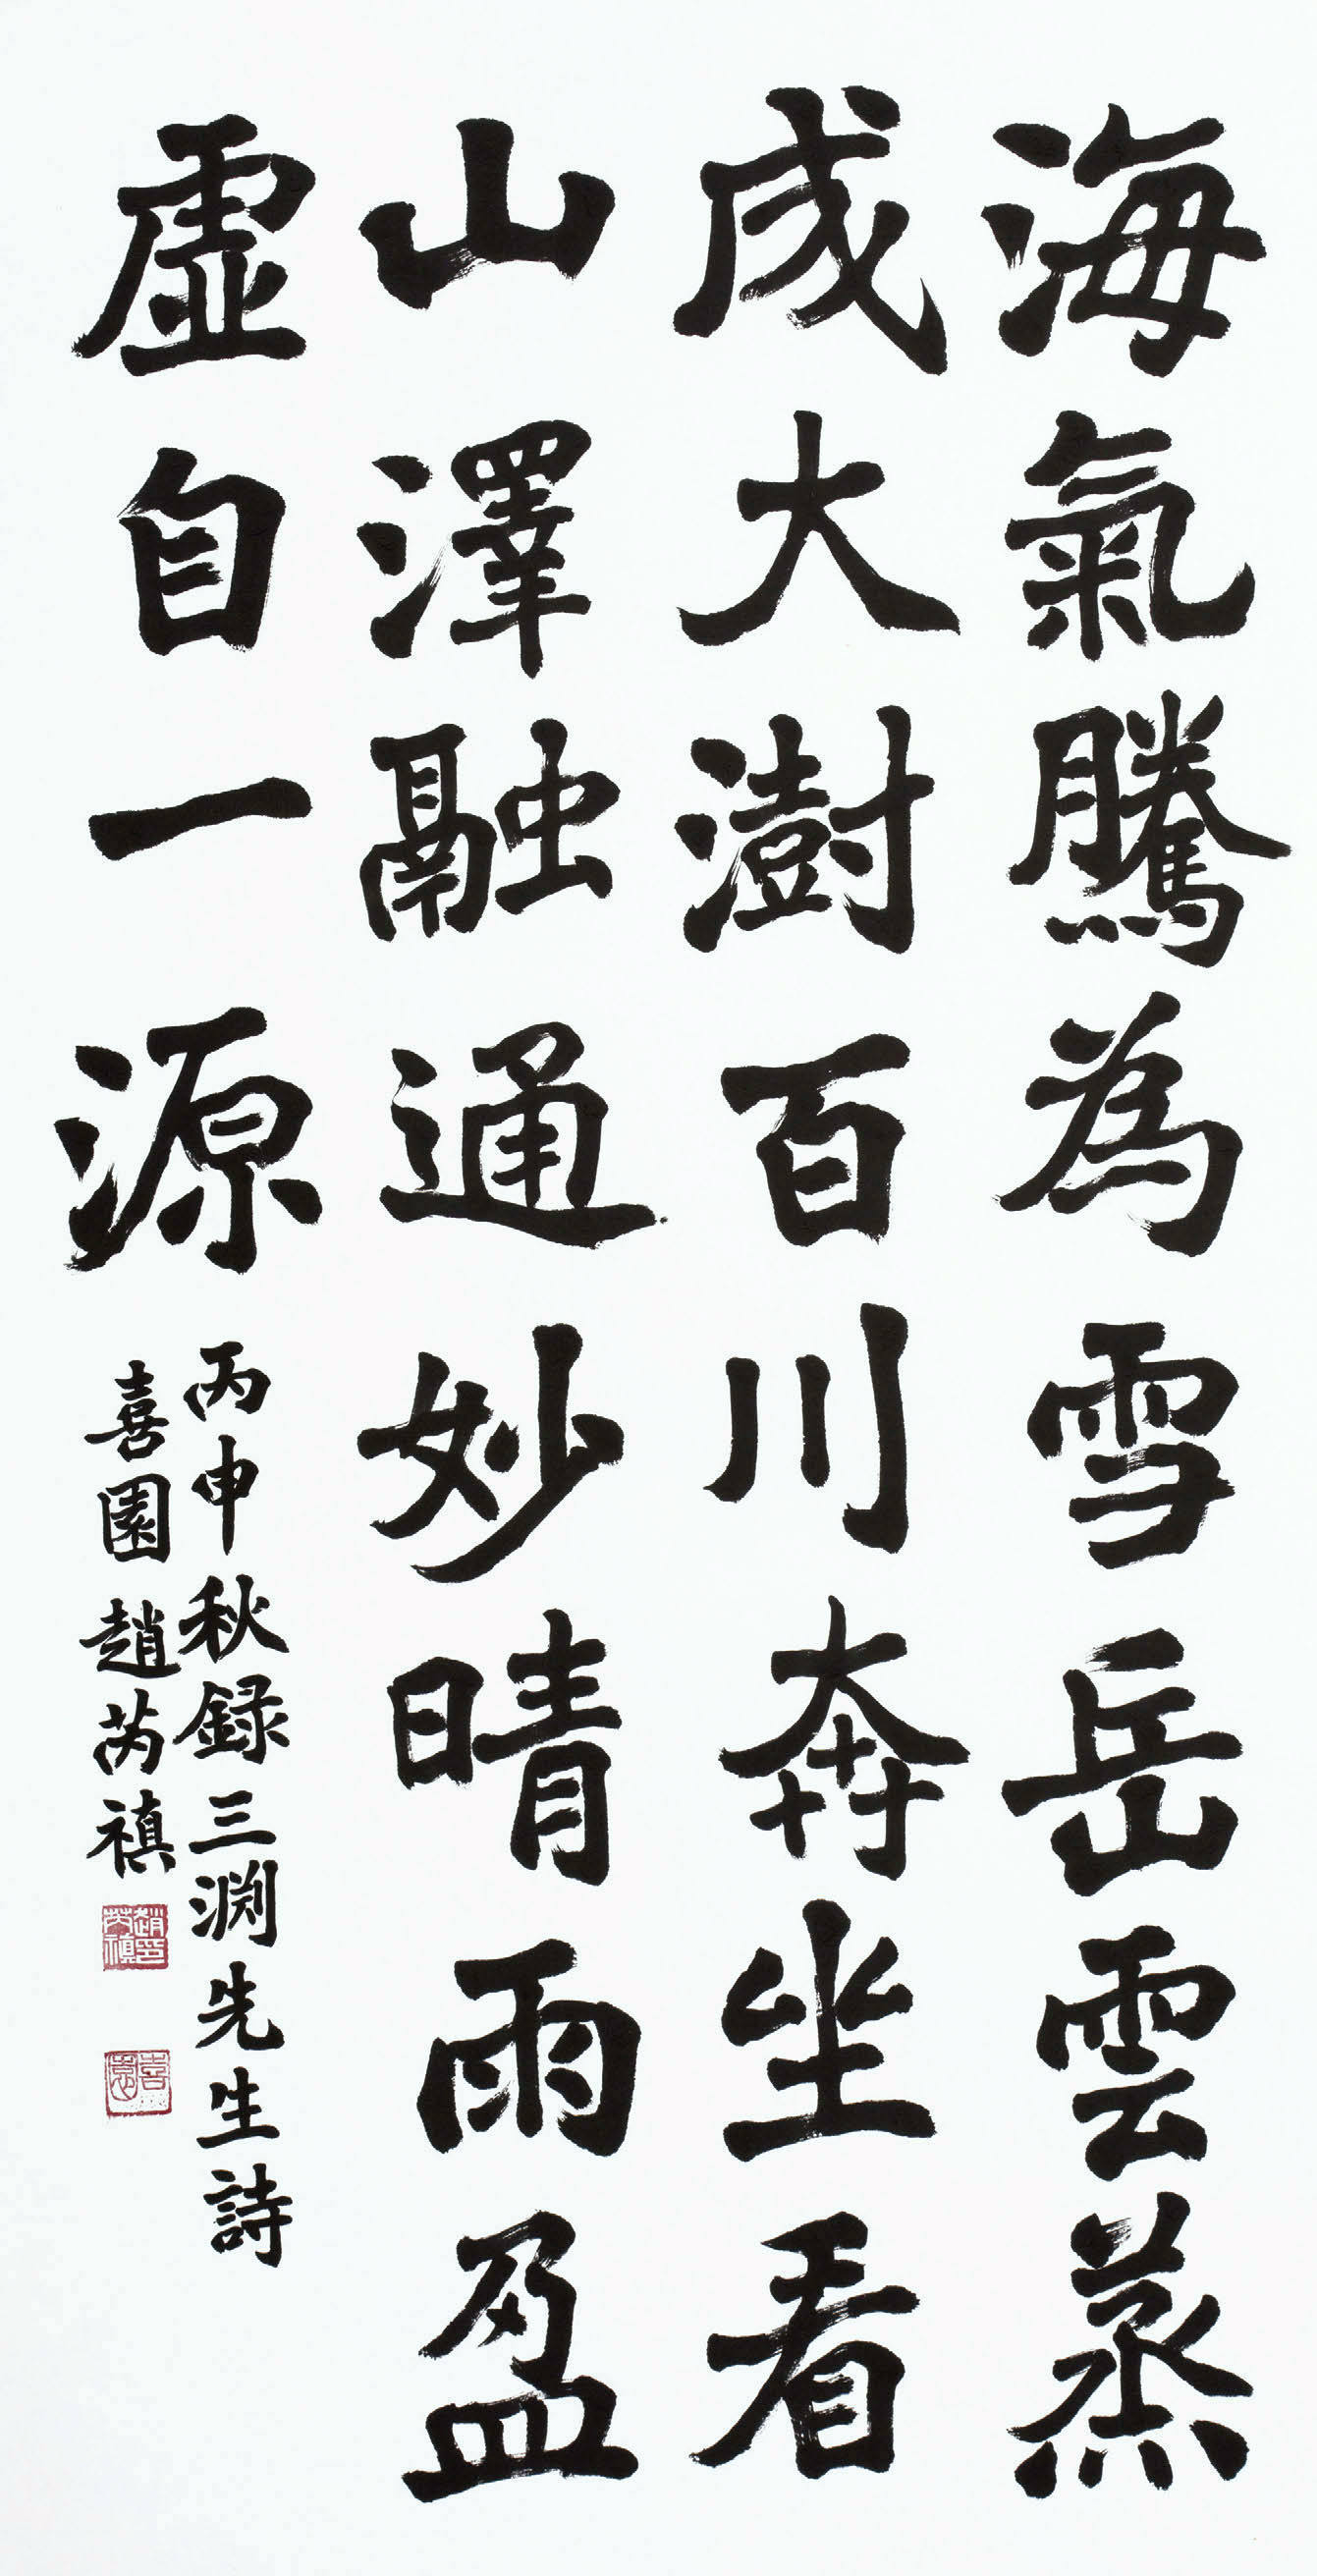 海氣騰為雪岳雲蒸
成大澍百川奔坐看
山澤融通妙晴雨盈
虛自一源
丙申秋録三淵先生詩
喜園趙芮禛
趙芮禛印
喜園